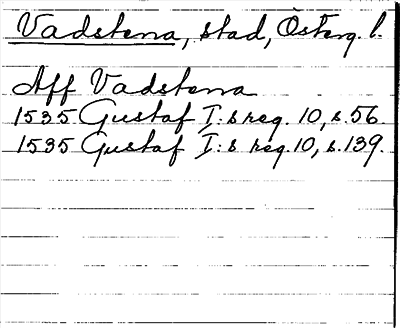 Vadstena, stad, Österg. l.
Aff Vadstena
1535 Gustaf I:s reg. 10, s. 56.
1535 Gustaf I:s reg. 10, s. 139.